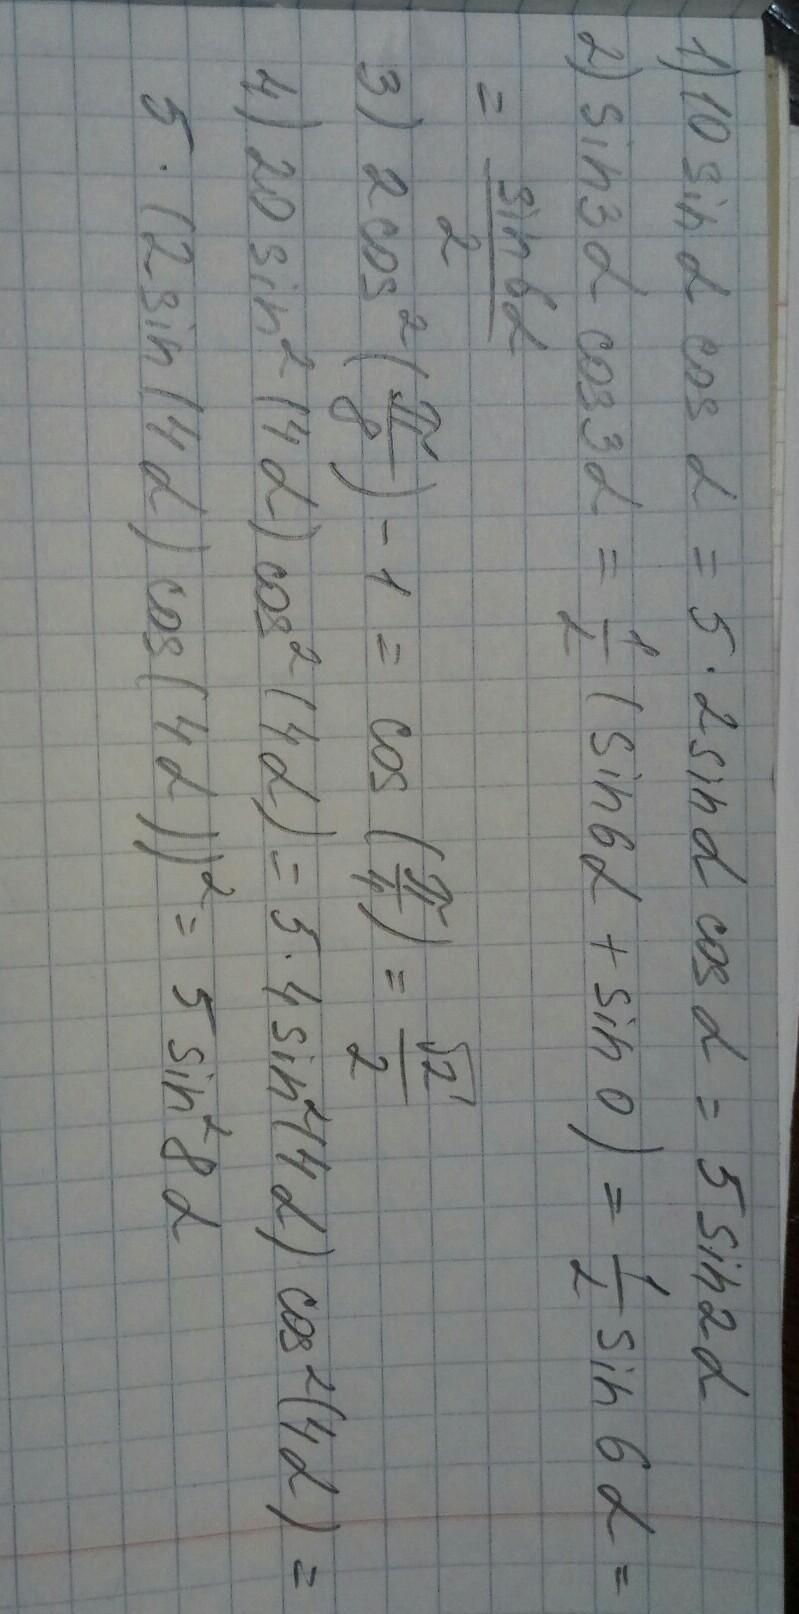 1) 10 sin α cos α = 5 · 2 sin α cos α = 5 sin 2α
2) sin 3α cos 3α = 1/2 (sin 6α + sin 0) = 1/2 sin 6α =
= sin 6α / 2
3) 2 cos² (π/8) - 1 = cos (π/4) = √2/2
4) 20 sin² (4α) cos² (4α) = 5 · 4 sin² (4α) cos² (4α) =
5 · (2 sin (4α) cos (4α))² = 5 sin² 8α